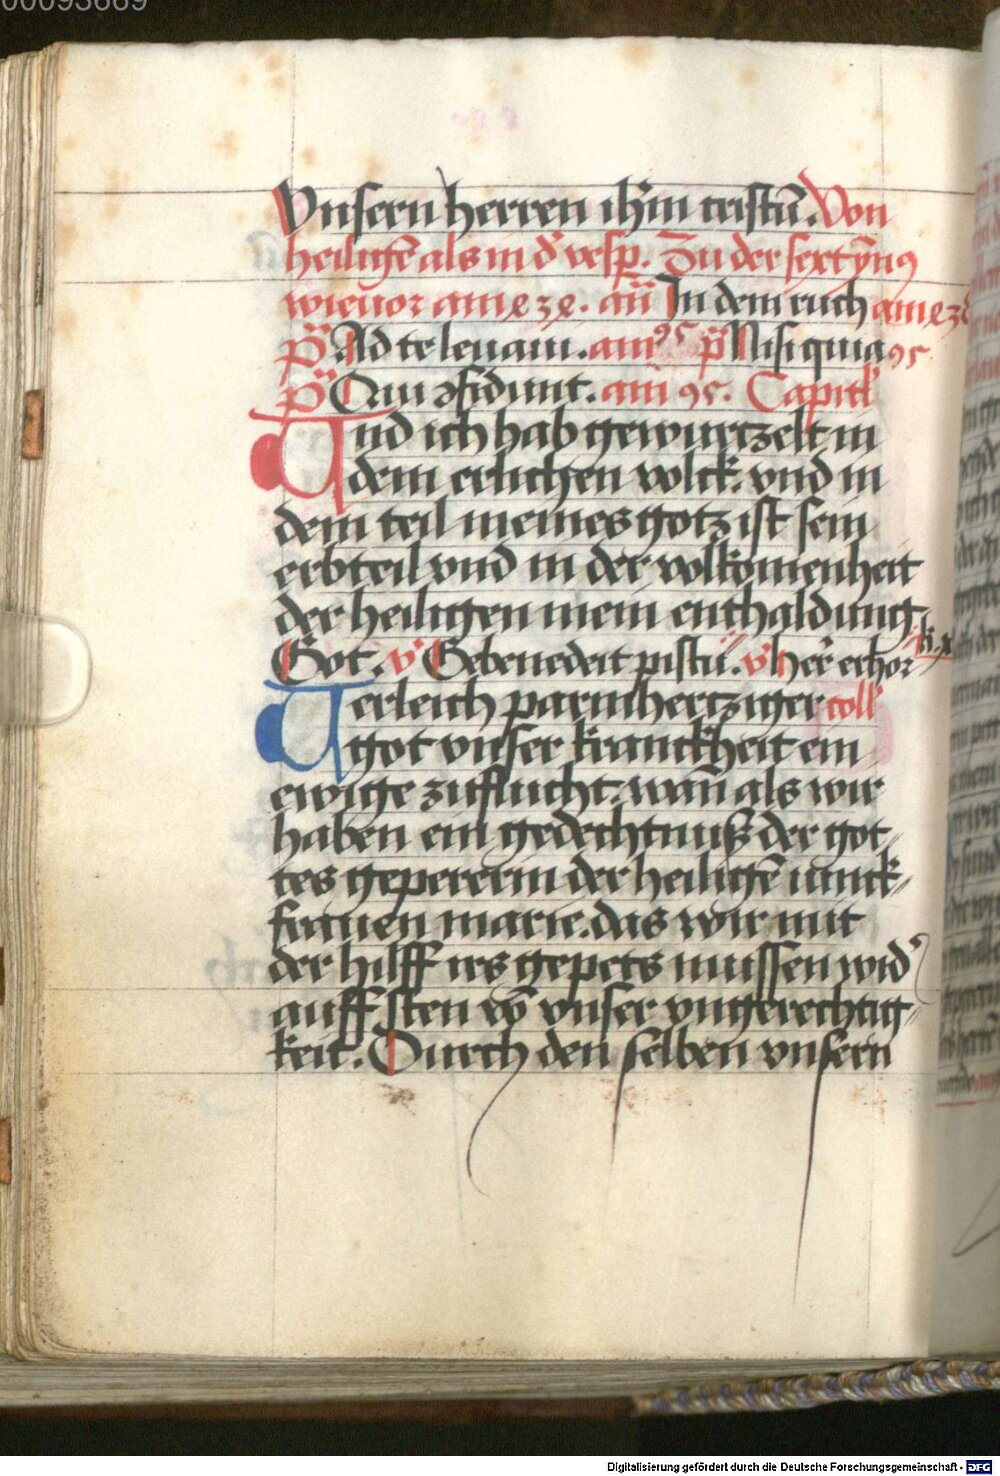 00093669
Vnsern herren ihm cristū. Von
heiligē als in d' vesp. Zu der sext ȳn9
wie vor am e 3 e. an̄ In dem ruch am e 3
p̄s Ad te leuaui. am 95 p̄s Nisi quia 95
p̄s Qui ꝯfidunt. am 95. Capitl'
Und ich hab gewurtzelt in
dem erlichen volck. vnd in
dem teil meines gotz ist sein
erbteil vnd in der volkomenheit
der heiligen mein enthaldung
k. x
Got. v' Gebenedeit pistu. v' her erhor
Verleich parmhertziger coll'
got vnser kranckheit ein
ewige zuflucht. wan̄ als wir
haben ein gedechtnuß der got,,
tes gepererin der heiligē iunck,,
frauen marie. das wir mit
der hilff irs gepets mussen wid'
auff sten vō vnser vngerechtig,,
keit. Durch den selben vnsern
Digitalisierung gefördert durch die Deutsche Forschungsgemeinschaft - DFG